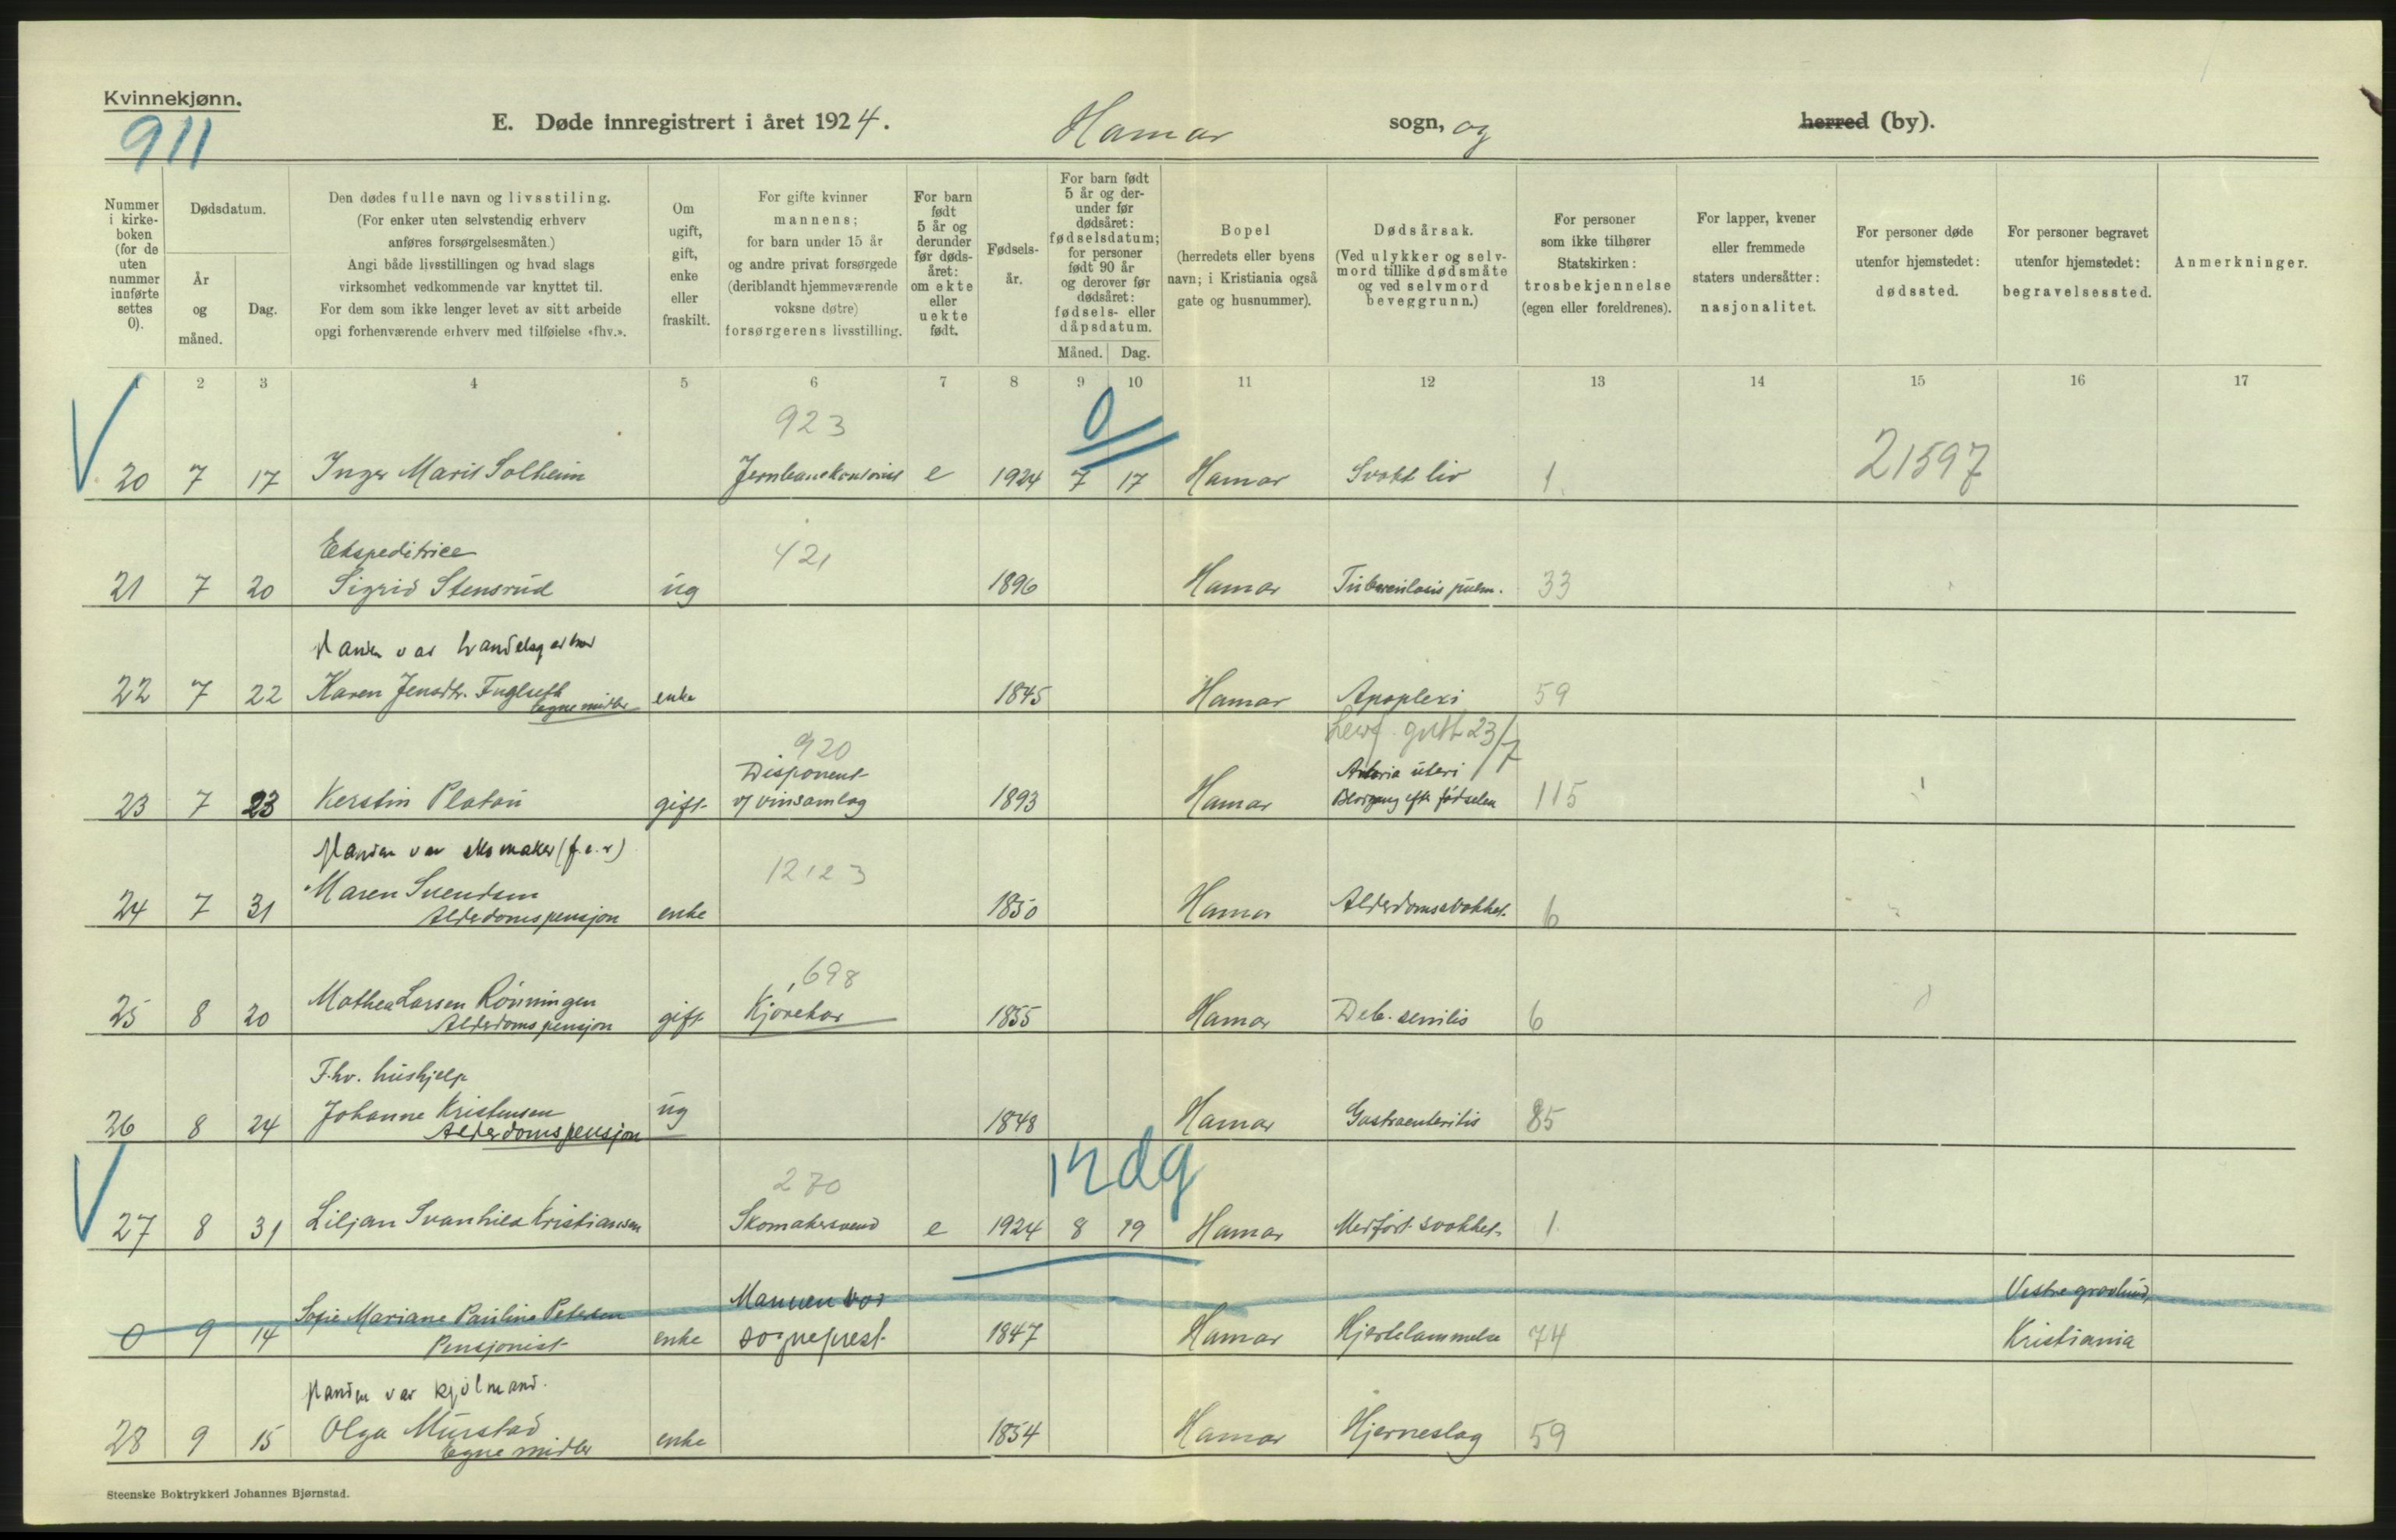 Kvinnekjønn.
911
E. Døde innregistrert i året 1924. Hamar sogn, og herred (by).
Nummer i kirke-boken (for de uten nummer innførte settes 0).
Dødsdatum.
År og måned.
Dag.
Den dødes fulle navn og livsstiling.
(For enker uten selvstendig erhverv
anføres forsørgelsesmåten.)
Angi både livsstillingen og hvad slags
virksomhet vedkommende var knyttet til.
For dem som ikke lenger levet av sitt arbeide
opgi forhenværende erhverv med tilføielse «fhv.».
Om ugift, gift, enke eller fraskilt.
For gifte kvinner
mannens;
for barn under 15 år
og andre privat forsørgede
(deriblandt hjemmeværende
voksne døtre)
forsørgerens livsstilling.
For barn født 5 år og derunder før døds-året: om ekte eller uekte født.
Fødsels-år.
For barn født 5 år og der-under før dødsåret: fødselsdatum; for personer født 90 år og derover før dødsåret: fødsels- eller dåpsdatum.
Måned. Dag.
Bopel
(herredets eller byens
navn; i Kristiania også
gate og husnummer).
Dødsårsak.
(Ved ulykker og selv-
mord tillike dødsmåte
og ved selvmord
beveggrunn.)
For personer
som ikke tilhører
Statskirken:
trosbekjennelse
(egen eller foreldrenes).
For lapper, kvener
eller fremmede
staters undersåtter:
nasjonalitet.
For personer døde
utenfor hjemstedet:
dødssted.
For personer begravet
utenfor hjemstedet:
begravelsessted.
Anmerkninger.
1 2 3 4 5 6 7 8 9 10 11 12 13 14 15 16 17
923 0
20 7 17 Inger Marit Solheim e 1924 7 17 Hamar Svakt liv 1. 21597
Ekspeditrice 421
21 7 20 Sigrid Stensrud ug 1896 Hamar Tuberculosis pulm. 33
Manden var
22 7 22 Karen Jensdtr. Fuglseth enke 1845 Hamar Apoplexi 59
Egne midler
23/7
920
Disponent uteri
23 7 23 Kerstin Platou gift v/ vinsamlag 1893 Hamar efter fødselen 115
Manden var skomaker
12123
24 7 31 Maren Svendsen enke 1850 Hamar Alderdomssvakhet. 6
Alderdomspensjon
698
25 8 20 Mathea Larsen Rönningen gift Kjørekar 1855 Hamar Deb. senilis 6
Alderdomspensjon
F.hv. hushjelp
26 8 24 Johanne Kristensen ug 1848 Hamar Gastroenteritis 85
Alderdomspensjon
270 12 dg
27 8 31 Liljan Svanhild Kristiansen Skomakersvend e 1924 8 19 Hamar Medført svakhet. 1.
Mannen var Vestre gravlund,
0 9 14 Sofie Mariane Pauline Petersen enke sogneprest 1847 Hamar Hjertelammelse 74 Kristiania
Pensjonist
Manden var kjølmand.
28 9 15 Olga Murstad enke 1854 Hamar Hjerneslag 59
Egne midler
Steenske Boktrykkeri Johannes Bjørnstad.